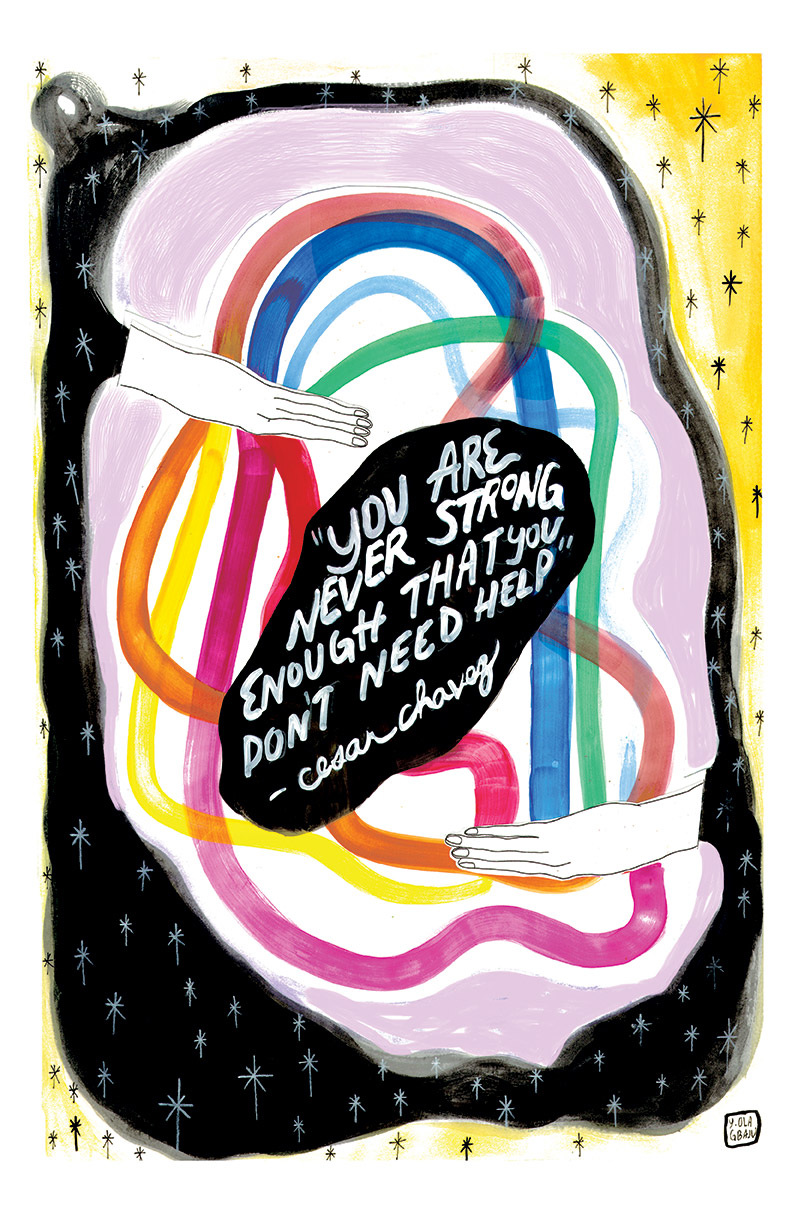 "YOU ARE
NEVER STRONG
ENOUGH THAT YOU
DON'T NEED HELP"
- cesar chavez
Y. OLA
GBAJU